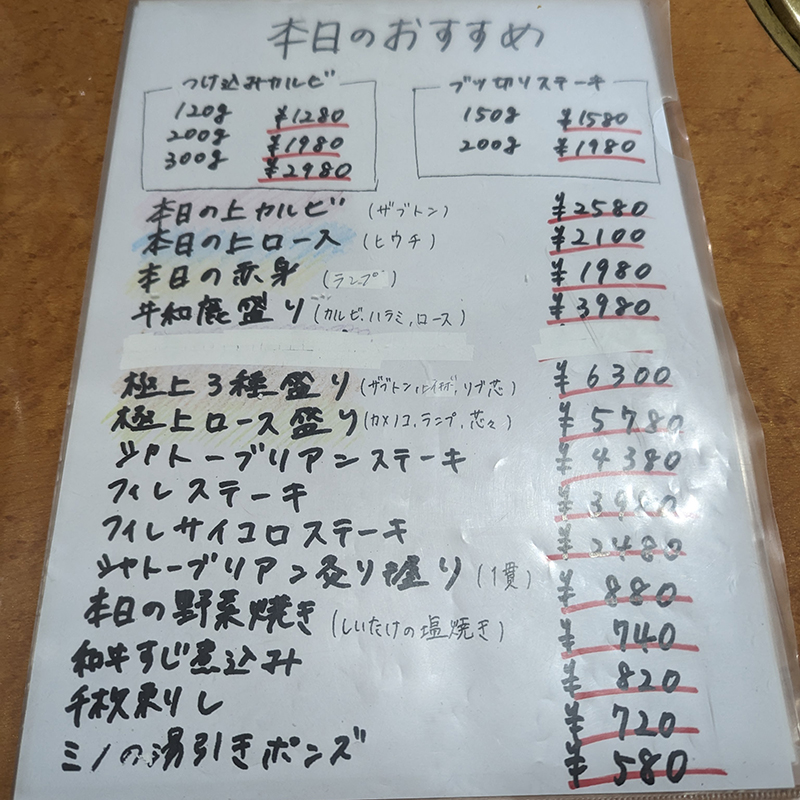 本日のおすすめ
つけ込みカルビ
120g ¥1280
200g ¥1980
300g ¥2980
ブツ切りステーキ
150g ¥1580
200g ¥1980
本日の上カルビ (ザブトン) ¥2580
本日の上ロース (ヒウチ) ¥2100
本日の赤身 (ランプ) ¥1980
牛和鹿盛り (カルビ,ハラミ,ロース) ¥3980
極上3種盛り (ザブトン,上イチボ,リブ芯) ¥6300
極上ロース盛り (カメノコ,ランプ,芯々) ¥5780
シャトーブリアンステーキ ¥4380
フィレステーキ ¥3980
フィレサイコロステーキ ¥2480
シャトーブリアン炙り握り (1貫) ¥880
本日の野菜焼き (しいたけの塩焼き) ¥740
和牛すじ煮込み ¥820
千枚刺し ¥720
ミノの湯引きポンズ ¥580